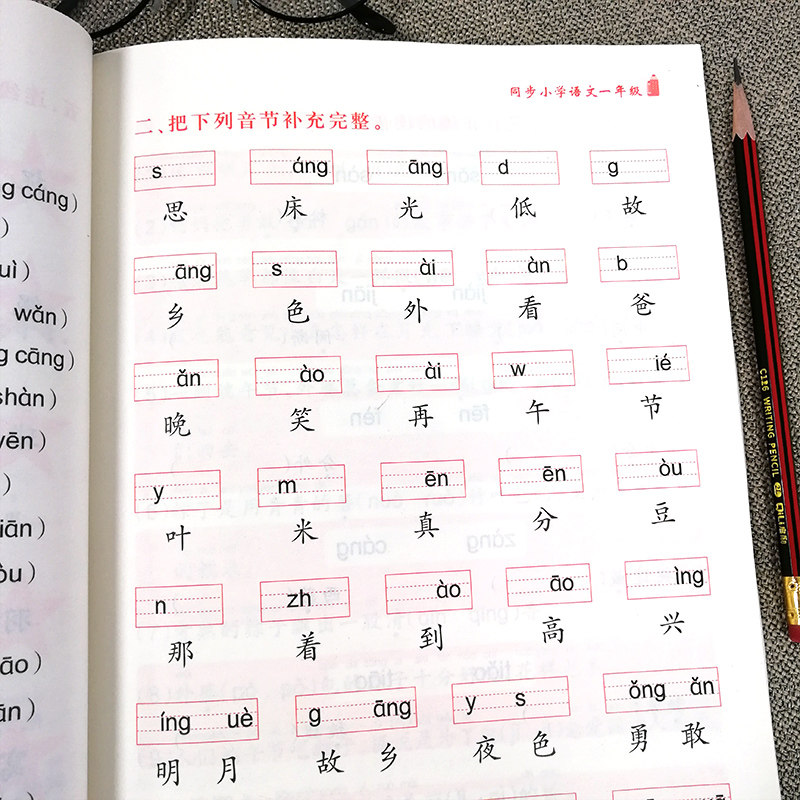 同步小学语文一年级
二、把下列音节补充完整。
s áng āng d g
思 床 光 低 故
āng s ài àn b
乡 色 外 看 爸
ǎn ào ài w ié
晚 笑 再 午 节
y m ēn ēn òu
叶 米 真 分 豆
n zh ào āo ìng
那 着 到 高 兴
íng uè g āng y s ǒng ǎn
明 月 故 乡 夜 色 勇 敢
g cáng）
）
uì）
wǎn）
g cāng）
shàn）
yēn）
）
iān）
òu）
āo）
ān）
C126 WRITING PENCIL